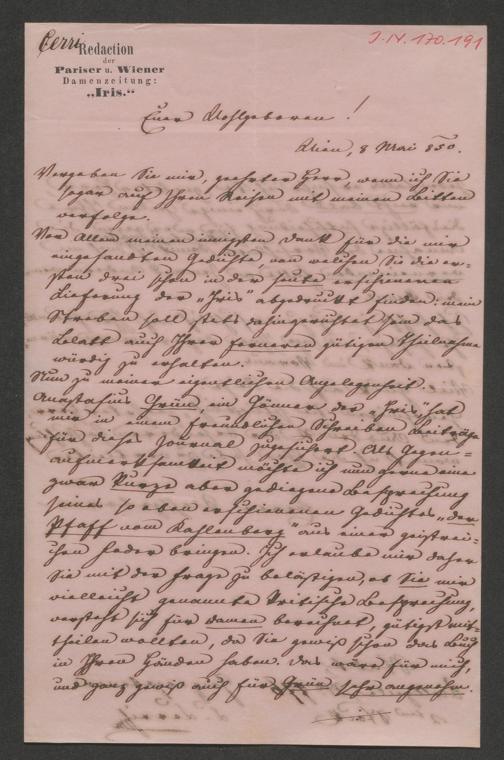 Cerri
J.N. 170.191
Redaction
der
Pariser u. Wiener
Damenzeitung:
„Iris.“
Euer Wohlgeboren!
Wien, 8 Mai 850.
Vergeben Sie mir, geehrter Herr, wenn ich Sie
sogar auf Ihren Reisen mit meinen Bitten
verfolge.
Vor Allem meinen innigsten Dank für die mir
eingesandten Gedichte, von welchen Sie die er-
sten drei schon in der heute erschienenen
Lieferung der „Iris“ abgedruckt finden: mein
Streben soll stets dahingerichtet sein das
Blatt auch Ihrer ferneren gütigen Theilnahme
würdig zu erhalten.
Nun zu meiner eigentlichen Angelegenheit.
Anastasius Grün, ein Gönner der „Iris“ hat
mir in einem freundlichen Schreiben Beiträge
für dieses Journal zugesichert. Als Gegen-
aufmerksamkeit möchte ich nun gerne eine
zwar kurze aber gediegene Besprechung
seines so eben erschienenen Gedichtes „der
Pfaff vom Kahlenberg“ aus einer geistrei-
chen Feder bringen. Ich erlaube mir daher
Sie mit der Frage zu belästigen, ob Sie mir
vielleicht genannte kritische Besprechung,
versteht sich für Damen berechnet, gütigst mit-
theilen wollten, da Sie gewiß schon das Buch
in Ihren Händen haben. Das wäre für mich,
und ganz gewiß auch für Grün sehr angenehm.